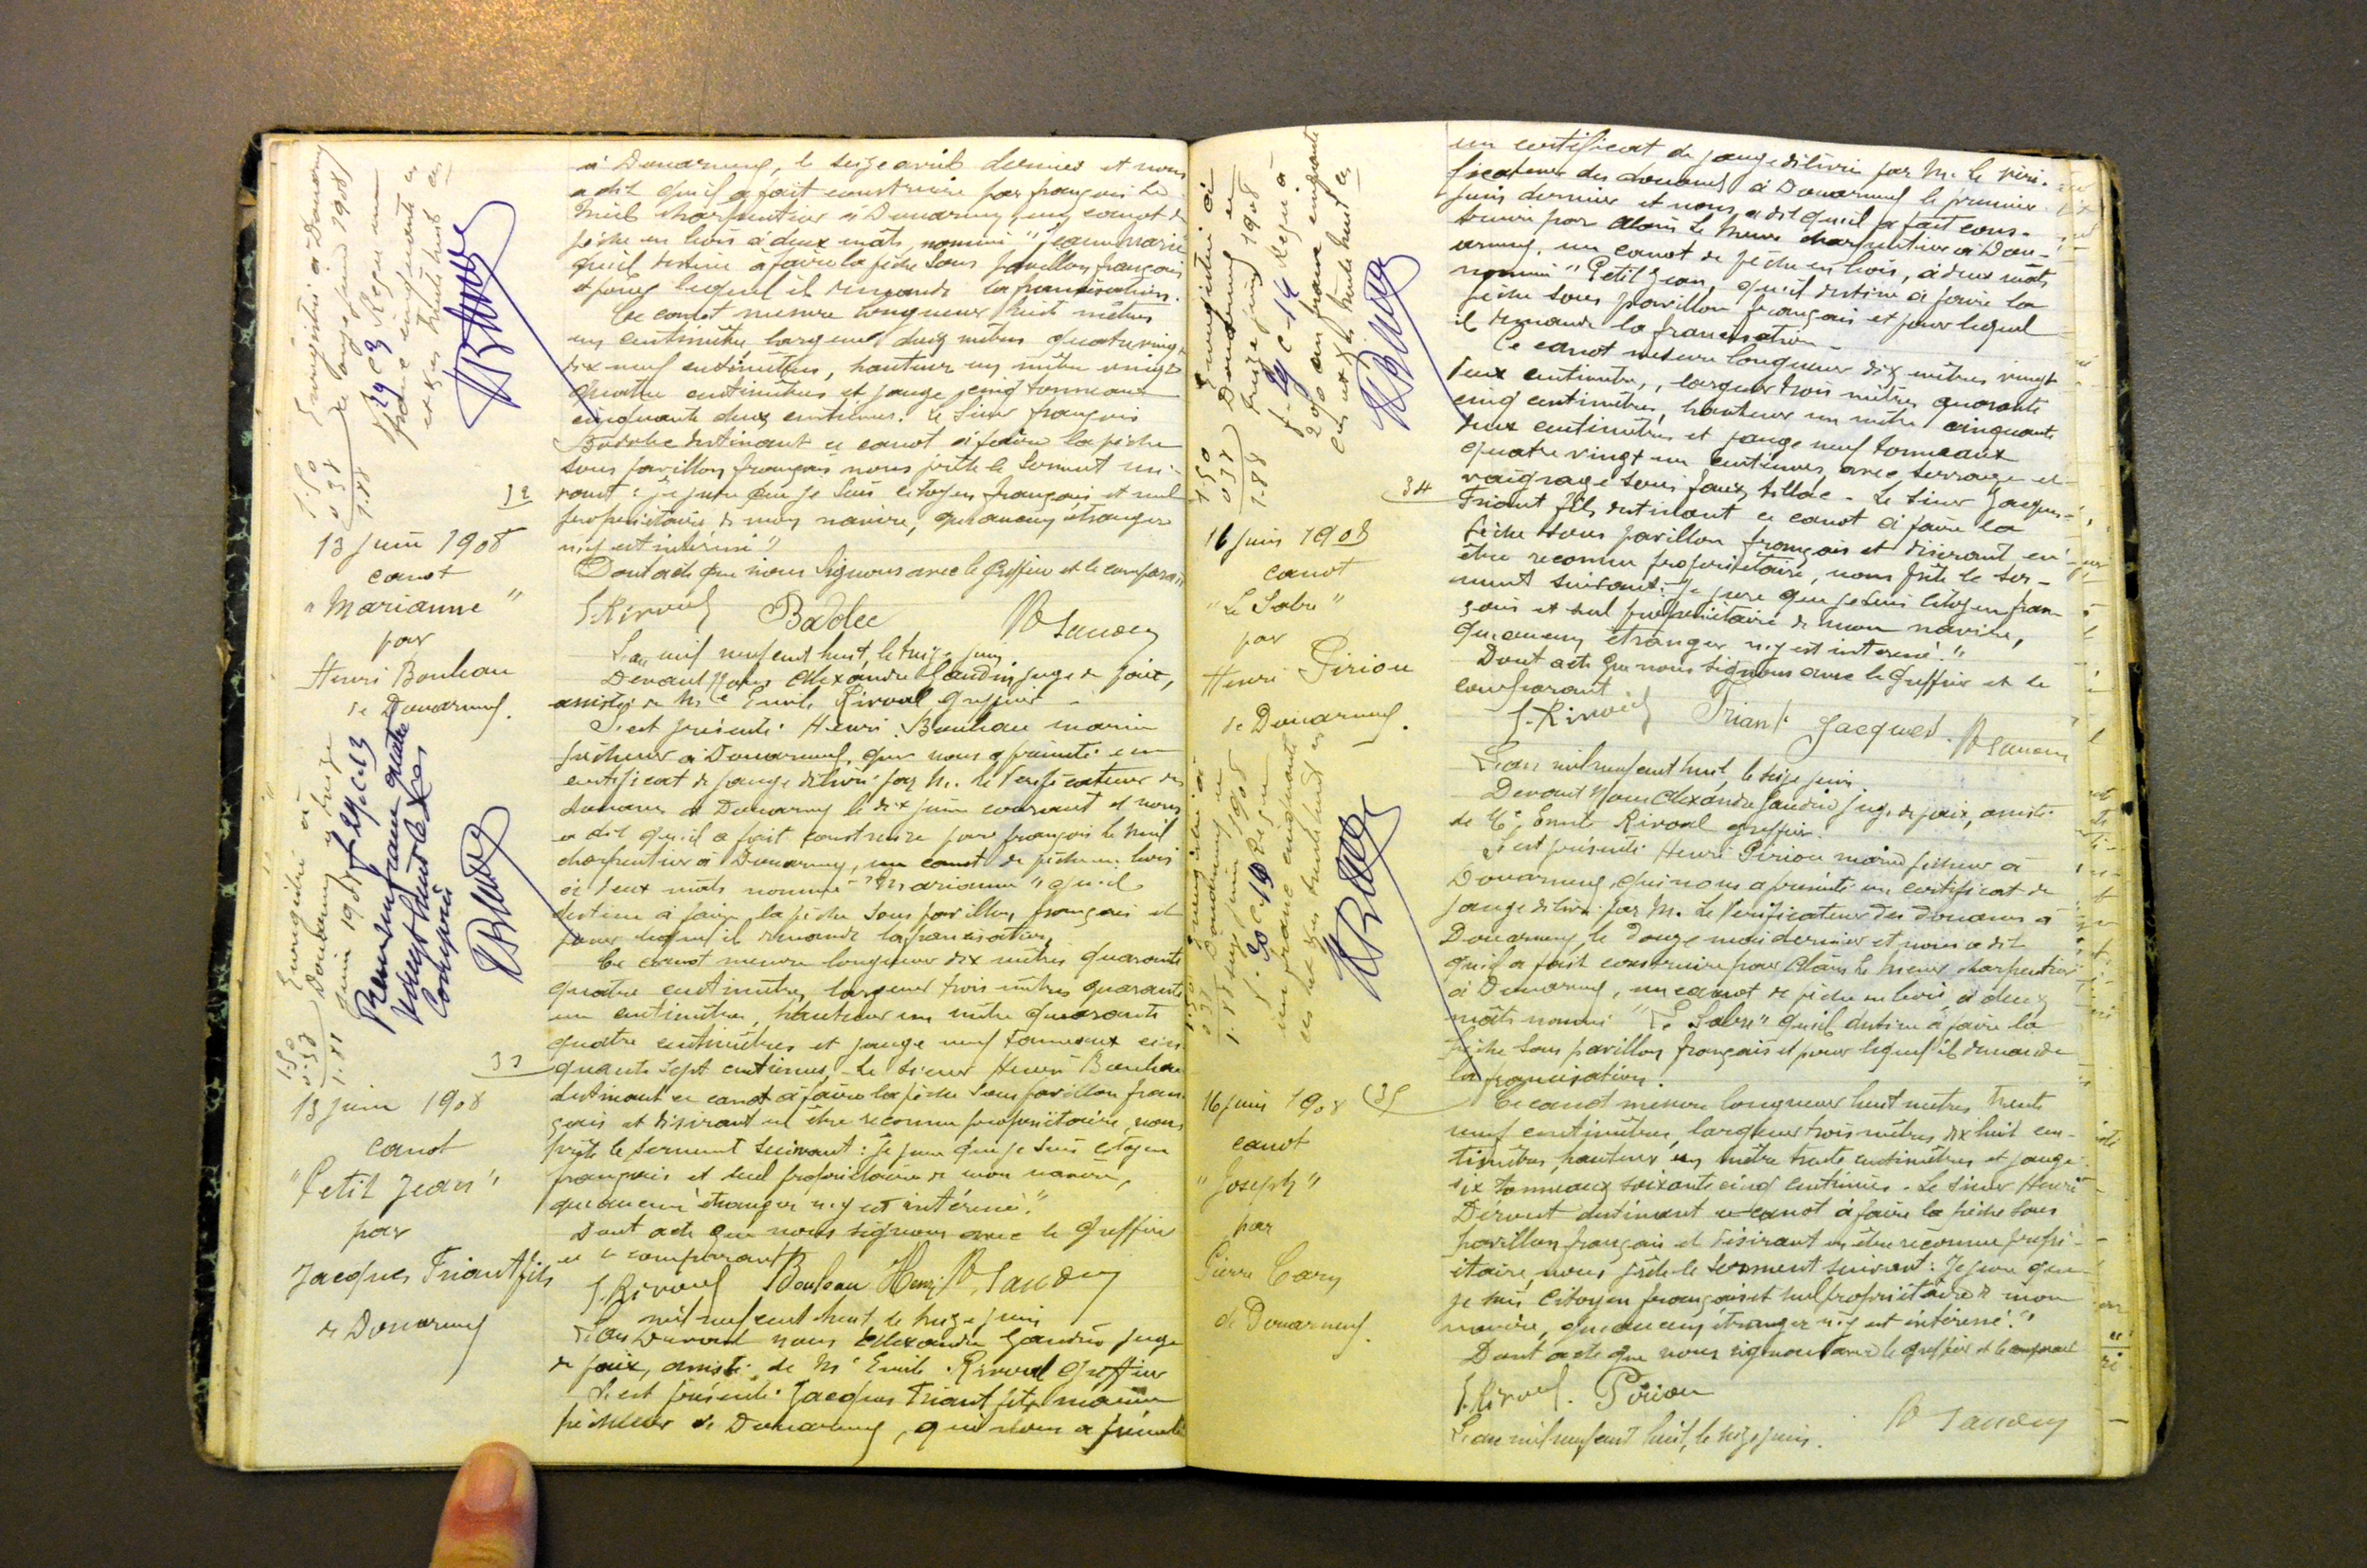 à Douarnenez, le seize avril dernier et nous
a dit qu'il a fait construire par françois Le
charpentier à Douarnenez un canot de
pêche en bois à deux mâts, nommé "Jeanne Marie"
qu'il destine à faire la pêche sous pavillon français
et pour lequel il demande la francisation.
Ce canot mesure longueur huit mètres
un centimètre, largeur deux mètres quatre vingt
dix neuf centimètres, hauteur un mètre vingt
quatre centimètres et jauge cinq tonneaux
cinquante deux centièmes. Le Sieur françois
Badolec destinant ce canot à faire la pêche
sous pavillon français nous prête le serment sui-
vant : je jure que je suis citoyen français et seul
propriétaire de mon navire, qu'aucun étranger
n'y est intéressé"
Dont acte que nous signons avec le Greffier et le comparant
E. Rivoal Badolec Gaudin
32
13 juin 1908
canot
"Marianne"
par
Henri Bonheau
de Douarnenez.
L'an mil neuf cent huit, le treize juin
Devant Nous Alexandre Gaudin juge de paix,
assisté de Me Emile Rivoal greffier
S'est présenté Henri Bonheau marin
pêcheur à Douarnenez, qui nous a présenté un
certificat de jauge délivré par M. le Vérificateur des
douanes à Douarnenez le dix juin courant et nous
a dit qu'il a fait construire par françois Le
charpentier à Douarnenez, un canot de pêche en bois
à deux mâts nommé "Marianne" qu'il
destine à faire la pêche sous pavillon français et
pour lequel il demande la francisation
Ce canot mesure longueur dix mètres quarante
quatre centimètres, largeur trois mètres quarante
un centimètres, hauteur un mètre quarante
quatre centimètres et jauge neuf tonneaux cin-
quante sept centièmes. Le sieur Henri Bonheau
destinant ce canot à faire la pêche sous pavillon fran-
çais et désirant en être reconnu propriétaire, nous
prête le serment suivant : je jure que je suis citoyen
français et seul propriétaire de mon navire,
qu'aucun étranger n'y est intéressé."
Dont acte que nous signons avec le Greffier
et le comparant
E. Rivoal Bonheau Henri Gaudin
33
13 juin 1908
canot
"Petit Jean"
par
Jacques Friant fils
de Douarnenez
L'an mil neuf cent huit, le treize juin
Devant nous Alexandre Gaudin juge
de paix, assisté de Me Emile Rivoal Greffier
S'est présenté Jacques Friant fils marin
pêcheur à Douarnenez, qui nous a présenté
Enregistré à Douarnenez
le douze juin 1908
fo 29 Co 3 Reçu un
franc cinquante cs
et xes trente huit cs
1.50
0 38
1.88
Enregistré à
Douarnenez, le treize
juin 1908 fo 29 Co 3
Reçu un franc quatre
vingt huit cs xes
compris
1.50
0.38
1.88
un certificat de jauge délivré par M. le véri-
ficateur des douanes à Douarnenez le premier
juin dernier et nous a dit qu'il a fait cons-
truire par Alain Le charpentier à Dou-
arnenez, un canot de pêche en bois, à deux mâts
nommé "Petit Jean, qu'il destine à faire la
pêche sous pavillon français et pour lequel
il demande la francisation -
Ce canot mesure longueur dix mètres vingt
deux centimètres, largeur trois mètres quarante
cinq centimètres, hauteur un mètre cinquante
deux centimètres et jauge neuf tonneaux
quatre vingt un centièmes, avec serrage et
vaigrage sous faux tillac - Le Sieur Jacques
Friant fils destinant ce canot à faire la
pêche sous pavillon français et désirant en
être reconnu propriétaire, nous prête le ser-
ment suivant : Je jure que je suis citoyen fran-
çais et seul propriétaire de mon navire,
qu'aucun étranger n'y est intéressé."
Dont acte que nous signons avec le Greffier et le
comparant.
E. Rivoal Friant Jacques Gaudin
34
16 juin 1908
canot
"Le Sabre"
par
Henri Pirion
de Douarnenez.
L'an mil neuf cent huit, le seize juin
Devant Nous Alexandre Gaudin Juge de paix, assisté
de Me Emile Rivoal greffier.
S'est présenté Henri Pirion marin pêcheur à
Douarnenez, qui nous a présenté un certificat de
jauge délivré par M. le Vérificateur des douanes à
Douarnenez le douze mai dernier et nous a dit
qu'il a fait construire par Alain Le charpentier
à Douarnenez, un canot de pêche en bois à deux
mâts nommé "Le Sabre" qu'il destine à faire la
pêche sous pavillon français et pour lequel il demande
la francisation.
Ce canot mesure longueur huit mètres trente
neuf centimètres, largeur trois mètres dix huit cen-
timètres, hauteur un mètre trente centimètres et jauge
six tonneaux soixante cinq centièmes. Le sieur Henri
destinant ce canot à faire la pêche sous
pavillon français et désirant en être reconnu propri-
étaire, nous prête le serment suivant : Je jure que
je suis citoyen français et seul propriétaire de mon
navire, qu'aucun étranger n'y est intéressé."
Dont acte que nous signons avec le greffier et le comparant
E. Rivoal. Pirion Gaudin
35
16 juin 1908
canot
"Joseph"
par
Pierre
de Douarnenez.
L'an mil neuf cent huit, le seize juin.
Enregistré à
Douarnenez le
treize juin 1908
fo 29 Co 14 Reçu à
2% un franc cinquante
cs et xes trente huit cs
1.50
0 38
1.88
Enregistré à
Douarnenez le
seize juin 1908
fo 30 Co 19 Reçu
un franc cinquante
cs et xes trente huit cs
1.50
0 38
1.88